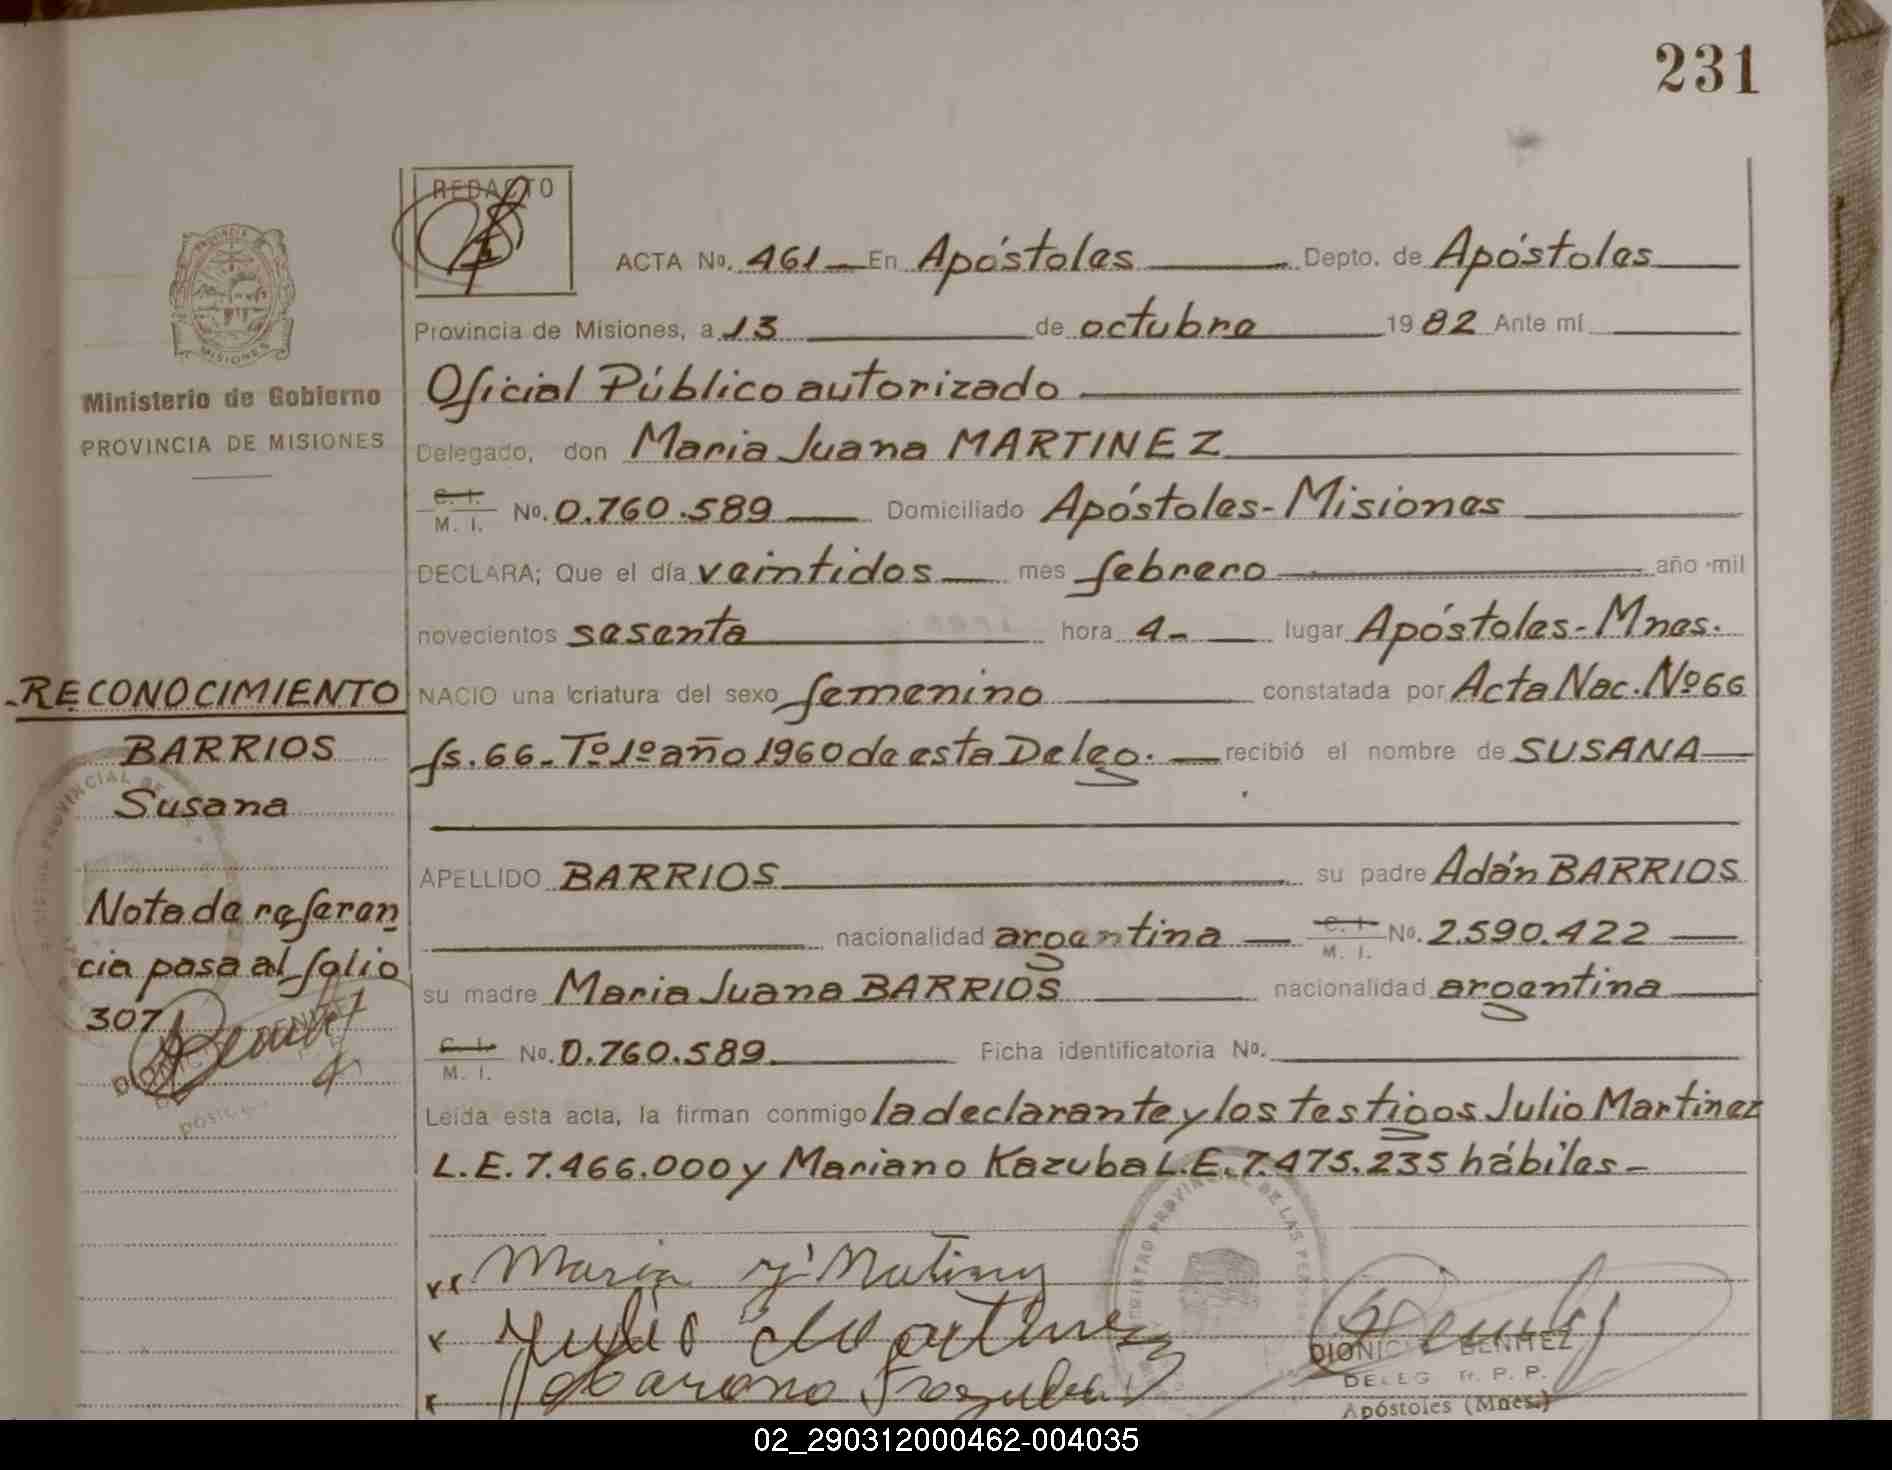 231
REDACTO
ACTA No. 461 En Apóstoles Depto. de Apóstoles
Provincia de Misiones, a 13 de octubre 1982 Ante mí
Oficial Público autorizado
Delegado, don Maria Juana MARTINEZ
C. I. M. I. No. 0.760.589 Domiciliado Apóstoles-Misiones
DECLARA; Que el día veintidos mes febrero año mil
novecientos sesenta hora 4- lugar Apóstoles-Mnes.
NACIO una criatura del sexo femenino constatada por Acta Nac. Nº 66
fs. 66- Tº 1º año 1960 de esta Deleg. recibió el nombre de SUSANA
APELLIDO BARRIOS su padre Adán BARRIOS
nacionalidad argentina C. I. M. I. No. 2.590.422
su madre Maria Juana BARRIOS nacionalidad argentina
C. I. M. I. No. 0.760.589 Ficha identificatoria No.
Leída esta acta, la firman conmigo la declarante y los testigos Julio Martinez
L.E. 7.466.000 y Mariano Kazuba L.E. 7.475.235 hábiles-
PROVINCIA DE
MISIONES
Ministerio de Gobierno
PROVINCIA DE MISIONES
RECONOCIMIENTO
BARRIOS
Susana
Nota de referen
cia pasa al folio
307
Maria
Julio Martinez
DIONICIO BENITEZ
DELEG R. P. P.
Apóstoles (Mnes.)
02_290312000462-004035